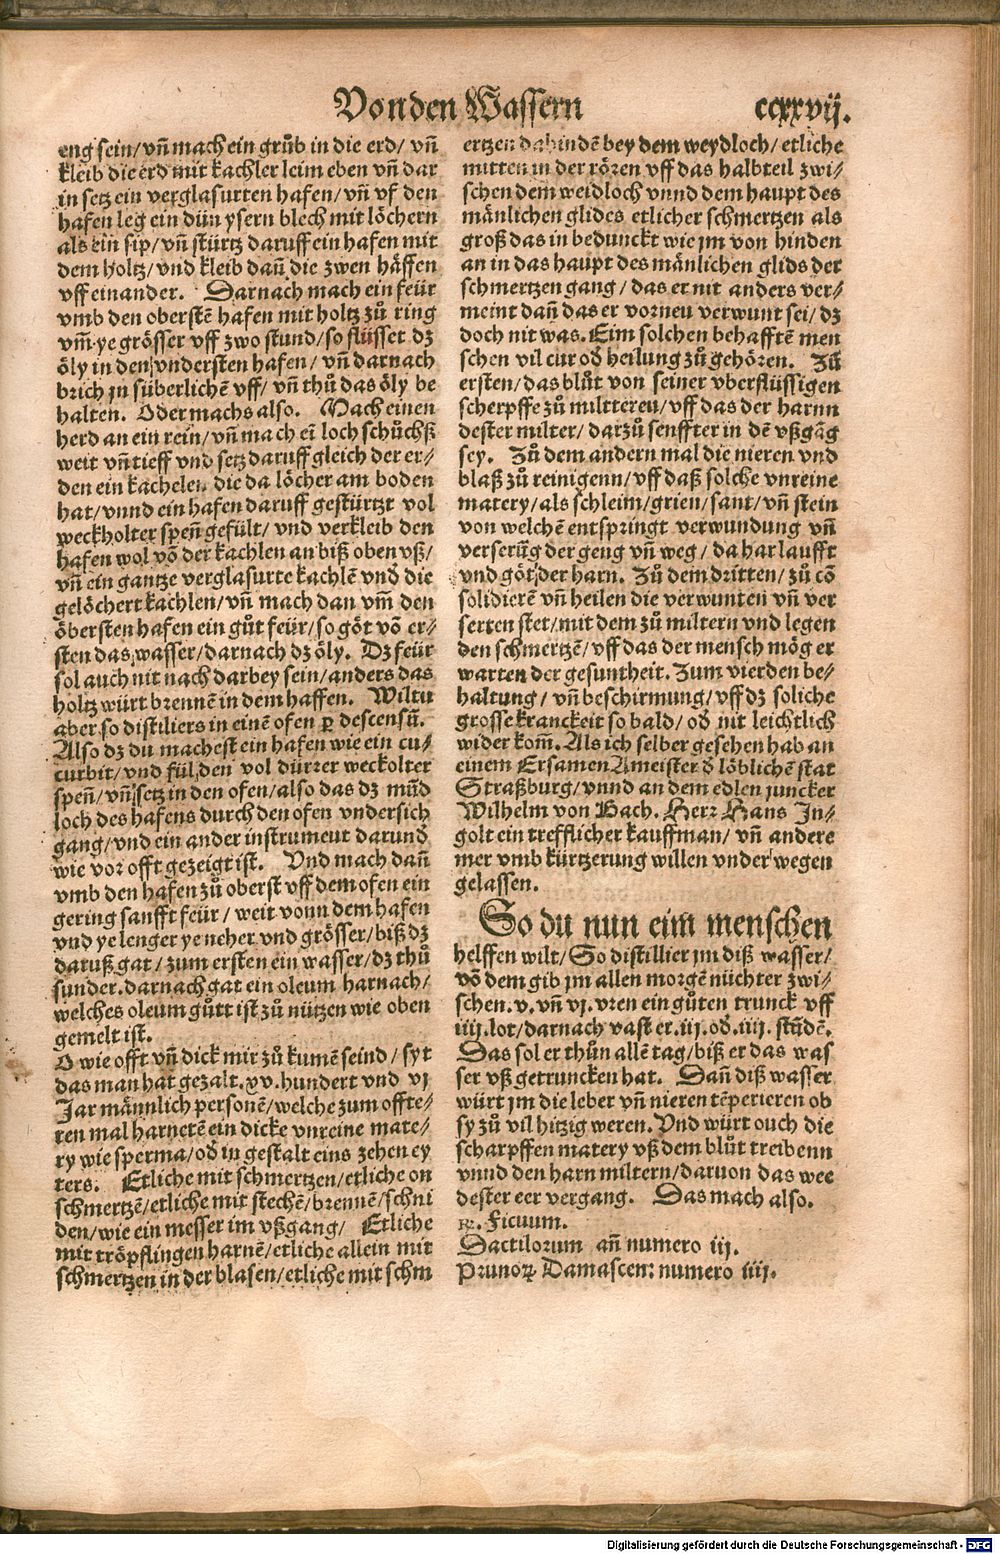 Von den Wassern ccxxvij.
eng sein/ vñ mach ein grůb in die erd/ vñ
kleib die erd mit kachler leim eben vñ dar
in setz ein verglasurten hafen/ vñ vf den
hafen leg ein dün ysern blech mit löchern
als ein sip/ vñ stürtz daruff ein hafen mit
dem holtz/ vnd kleib dañ die zwen häffen
vff einander. Darnach mach ein feür
vmb den oberstē hafen mit holtz zů ring
vm̄ ye grösser vff zwo stund/ so flüsset dz
öly in den vndersten hafen/ vñ darnach
brich jn süberlichē vff/ vñ thů das öly be
halten. Oder machs also. Mach einen
herd an ein rein/ vñ mach eī loch schůchß
weit vñ tieff vnd setz daruff gleich der er/
den ein kachelen die da löcher am boden
hat/ vnnd ein hafen daruff gestürtzt vol
weckholter speñ gefült/ vnd verkleib den
hafen wol vō der kachlen an biß oben vß/
vñ ein gantze verglasurte kachlē vnd die
gelöchert kachlen/ vñ mach dan vm̄ den
öbersten hafen ein gůt feür/ so göt vō er/
sten das wasser/ darnach dz öly. Dz feür
sol auch nit nach darbey sein/ anders das
holtz würt brennē in dem haffen. Wiltu
aber so distiliers in einē ofen p descensū.
Also dz du machest ein hafen wie ein cu/
curbit/ vnd fül den vol dürrer weckolter
speñ/ vñ setz in den ofen/ also das dz mūd
loch des hafens durch den ofen vndersich
gang/ vnd ein ander instrument darund
wie vor offt gezeigt ist. Vnd mach dañ
vmb den hafen zů oberst vff dem ofen ein
gering sanfft feür/ weit vonn dem hafen
vnd ye lenger ye neher vnd grösser/ biß dz
daruß gat/ zum ersten ein wasser/ dz thů
sunder. darnach gat ein oleum harnach/
welches oleum gůtt ist zů nützen wie oben
gemelt ist.
O wie offt vñ dick mir zů kumē seind/ syt
das man hat gezalt. xv. hundert vnd vj
Jar männlich personē/ welche zum offte/
ren mal harnetē ein dicke vnreine mate/
ry wie sperma/ od in gestalt eins zehen ey
ters. Etliche mit schmertzen/ etliche on
schmertzē/ etliche mit stechē/ brennē/ schni
den/ wie ein messer im vßgang/ Etliche
mit tröpflingen harnē/ etliche allein mit
schmertzen in der blasen/ etliche mit schm
ertzen dahindē bey dem weydloch/ etliche
mitten in der rören vff das halbteil zwi/
schen dem weidloch vnnd dem haupt des
mänlichen glides etlicher schmertzen als
groß das in bedunckt wie jm von hinden
an in das haupt des mänlichen glids der
schmertzen gang/ das er nit anders ver/
meint dañ das er vorneu verwunt sei/ dz
doch nit was. Eim solchen behafftē men
schen vil cur od heilung zů gehören. Zů
ersten/ das blůt von seiner vberflüssigen
scherpffe zů miltteren/ vff das der harnn
dester milter/ darzů senffter in dē vßgāg
sey. Zů dem andern mal die nieren vnd
blaß zů reinigenn/ vff daß solche vnreine
matery/ als schleim/ grien/ sant/ vñ stein
von welchē entspringt verwundung vñ
verserūg der geng vñ weg/ da har laufft
vnd göt der harn. Zů dem dritten/ zů cō
solidierē vñ heilen die verwunten vñ ver
serten stet/ mit dem zů miltern vnd legen
den schmertzē/ vff das der mensch mög er
warten der gesuntheit. Zum vierden be/
haltung/ vñ beschirmung/ vff dz soliche
grosse kranckeit so bald/ od nit leichtlich
wider kom̄. Als ich selber gesehen hab an
einem Ersamen Ameister d löblichē stat
Straßburg/ vnnd an dem edlen juncker
Wilhelm von Bach. Herr Hans In/
golt ein trefflicher kauffman/ vñ andere
mer vmb kürtzerung willen vnder wegen
gelassen.
So du nun eim menschen
helffen wilt/ So distillier jm diß wasser/
vō dem gib jm allen morgē nüchter zwi/
schen. v. vñ vj. vren ein gůten trunck vff
iiij. lot/ darnach vast er. iij. od. iiij. stūdē.
Das sol er thůn allē tag/ biß er das was
ser vß getruncken hat. Dañ diß wasser
würt jm die leber vñ nieren tēperieren ob
sy zů vil hitzig weren. Vnd würt ouch die
scharpffen matery vß dem blůt treibenn
vnnd den harn miltern/ daruon das wee
dester eer vergang. Das mach also.
℞. Ficuum.
Dactilorum añ numero iij.
Prunoꝝ Damascen: numero iiij.
Digitalisierung gefördert durch die Deutsche Forschungsgemeinschaft - DFG